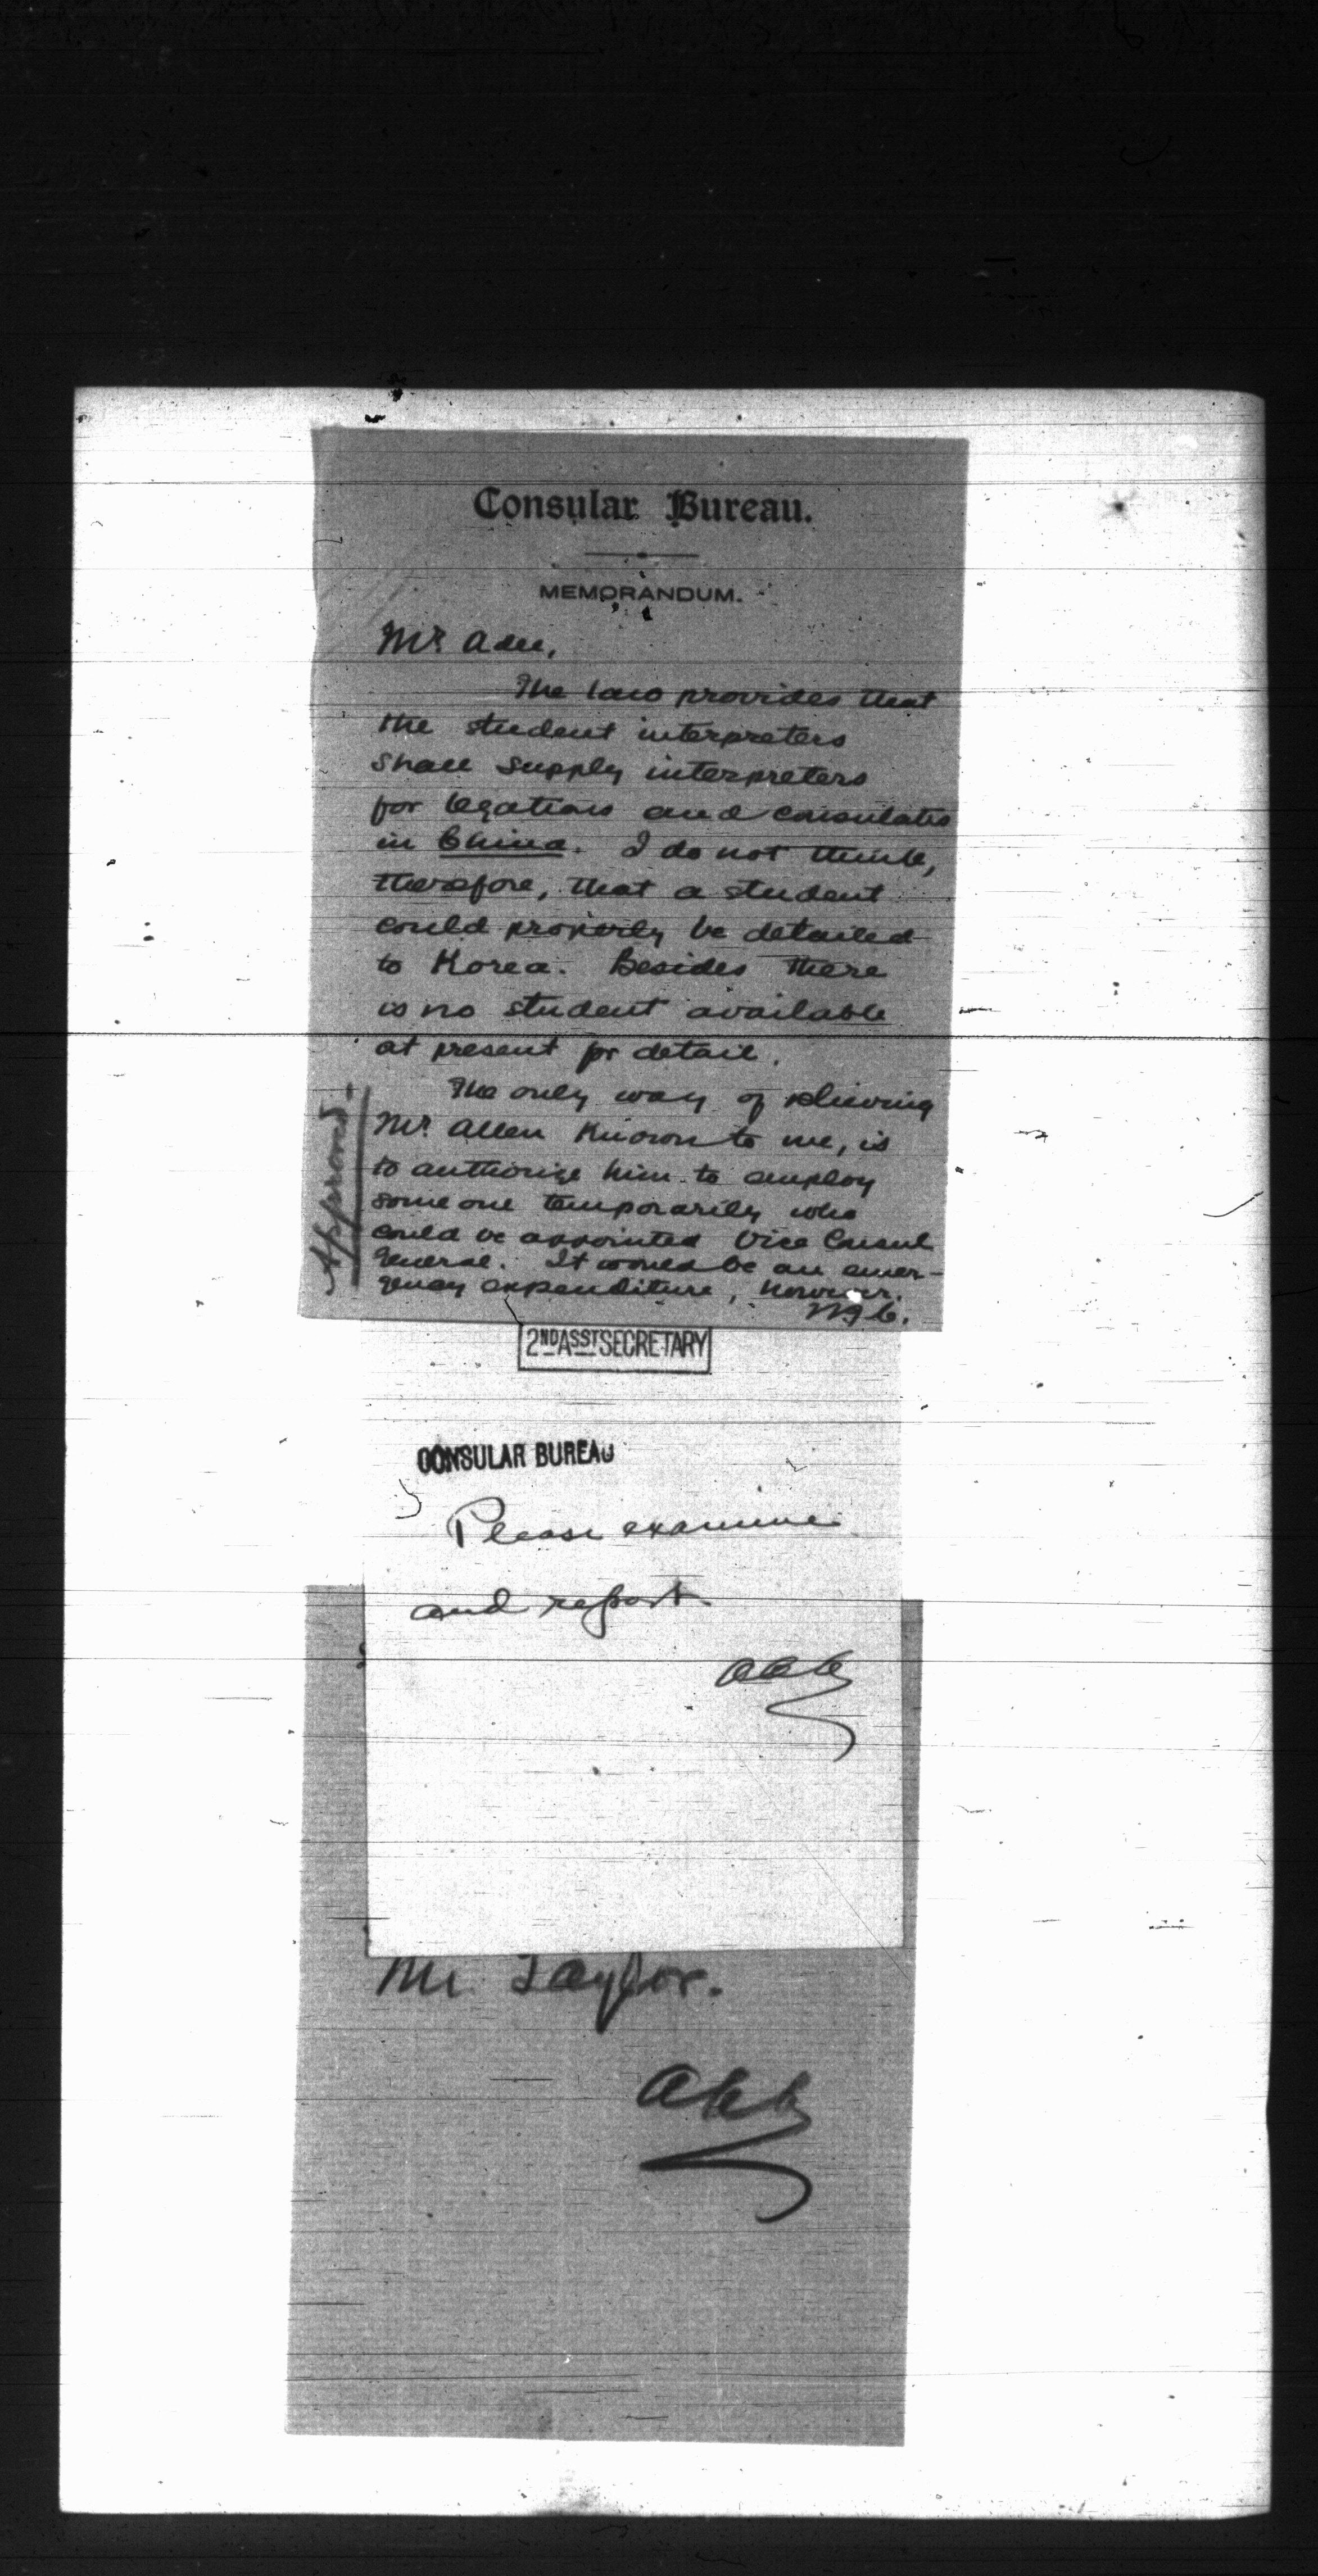 Consular Bureau.
MEMORANDUM.
Mr. Adee,
The law provides that
the student interpreters
shall supply interpreters
for legations and consulates
in China. I do not think,
therefore, that a student
could properly be detailed
to Korea. Besides there
is no student available
at present for detail.
The only way of relieving
Mr. Allen known to me, is
to authorize him to employ
some one temporarily who
could be appointed Vice Consul
General. It would be an emer-
gency expenditure, however.
Approved.
2ND ASST SECRETARY
CONSULAR BUREAU
Please examine
and report
Mr. Taylor.